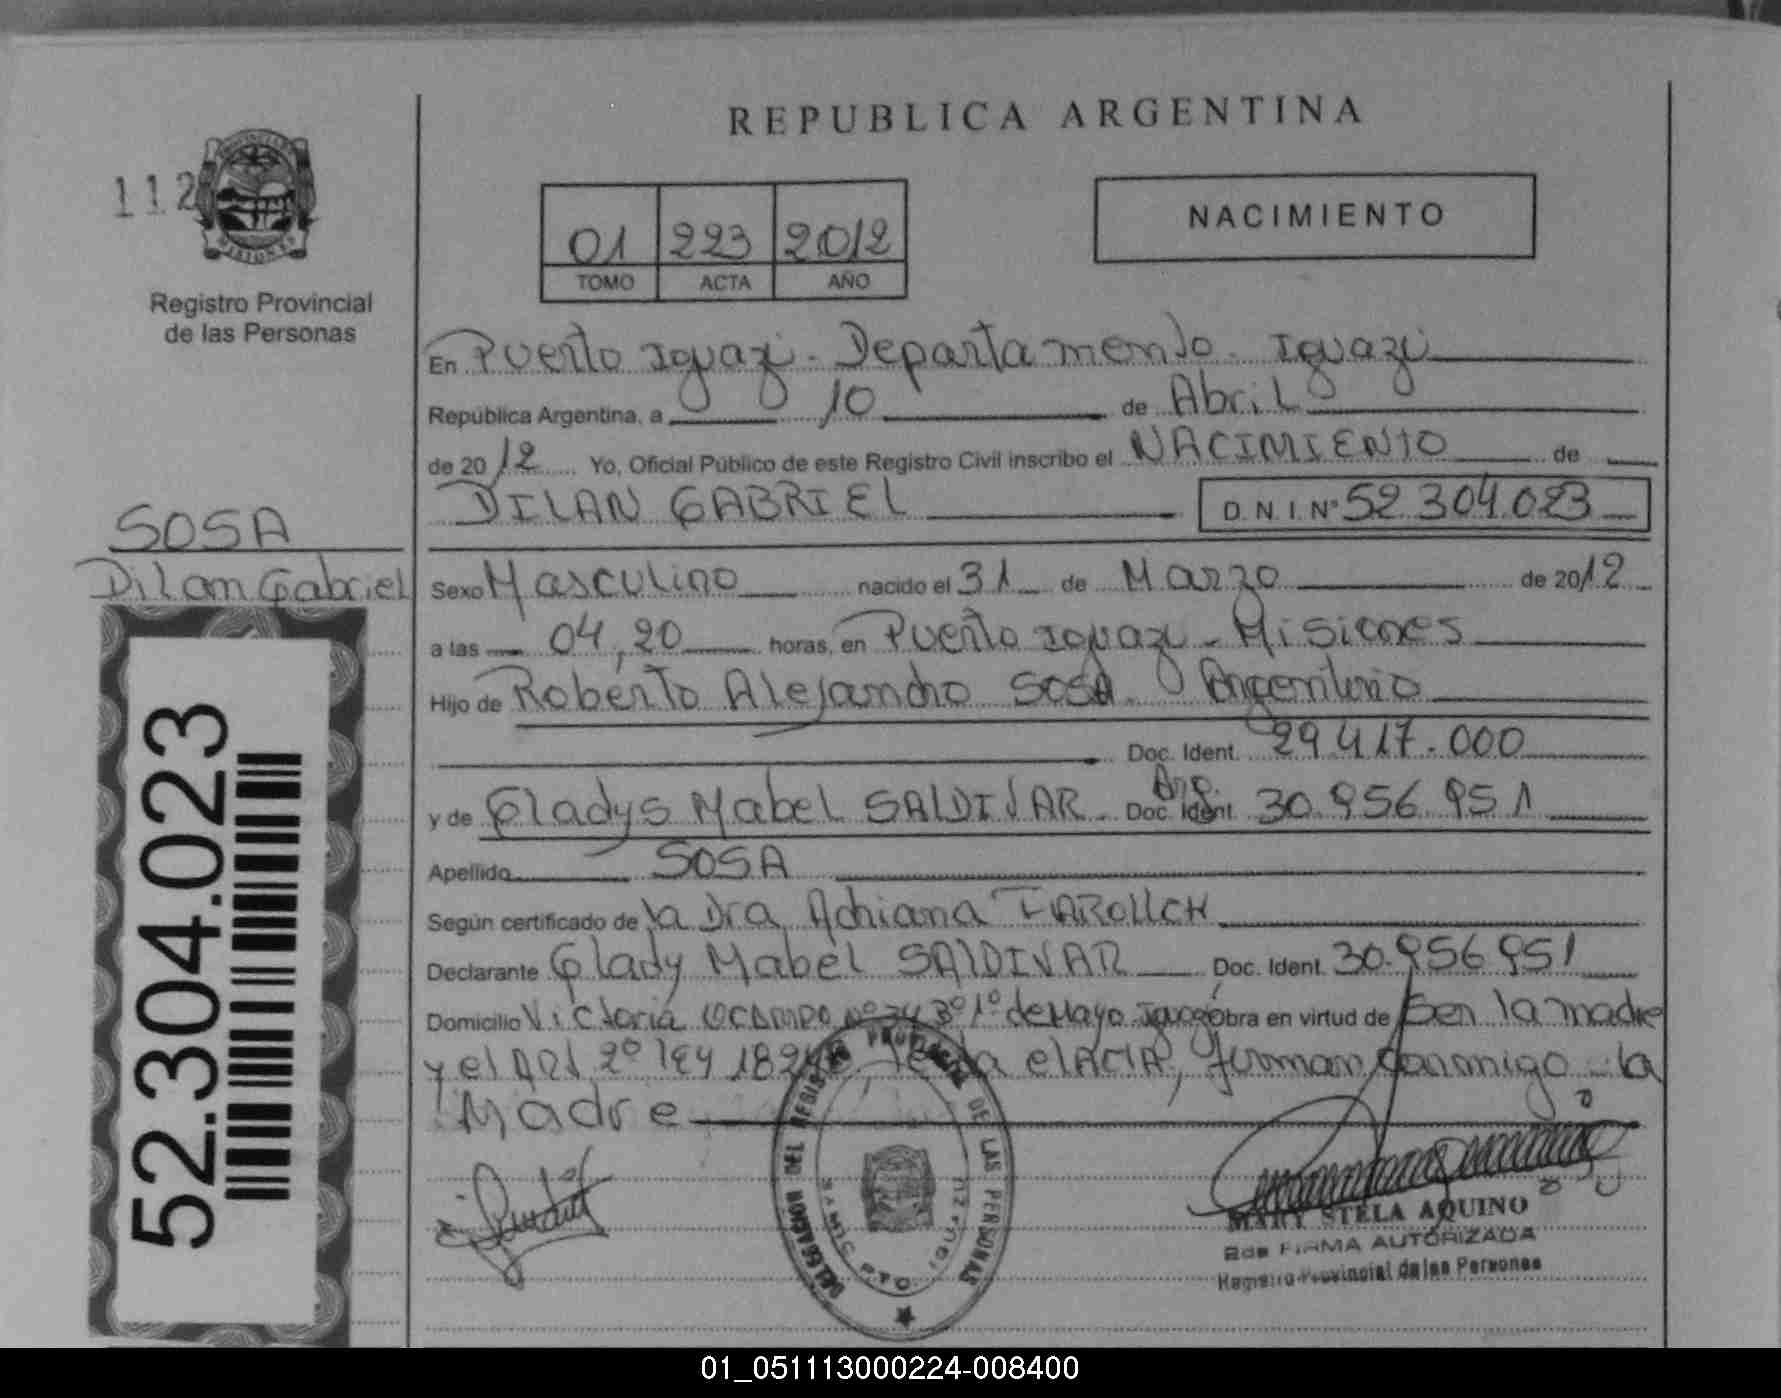 REPUBLICA ARGENTINA
112
Registro Provincial
de las Personas
01 223 2012
TOMO ACTA AÑO
NACIMIENTO
En Puerto Iguazú - Departamento - Iguazú
República Argentina, a 10 de Abril
de 2012 Yo, Oficial Público de este Registro Civil inscribo el NACIMIENTO de
DILAN GABRIEL D.N.I. Nº 52.304.023
SOSA
Dilan Gabriel
Sexo Masculino nacido el 31 de Marzo de 2012
a las 04,20 horas, en Puerto Iguazu - Misiones
Hijo de Roberto Alejandro SOSA. Argentino
Doc. Ident. 29.417.000
y de Gladys Mabel SALDIVAR. Arg. Doc. Ident. 30.956.951
Apellido SOSA
Según certificado de la Dra Adriana
Declarante Glady Mabel SALDIVAR Doc. Ident. 30.956.951
Domicilio Victoria OCAMPO 1º de Mayo obra en virtud de Ser la madre
y el ART 2º ley el ACTA, firman conmigo la
Madre
52.304.023
DELEGACION DEL REGISTRO PROVINCIAL DE LAS PERSONAS
PTO. IGUAZU
MARY STELA AQUINO
2da FIRMA AUTORIZADA
Registro Provincial de las Personas
01_051113000224-008400